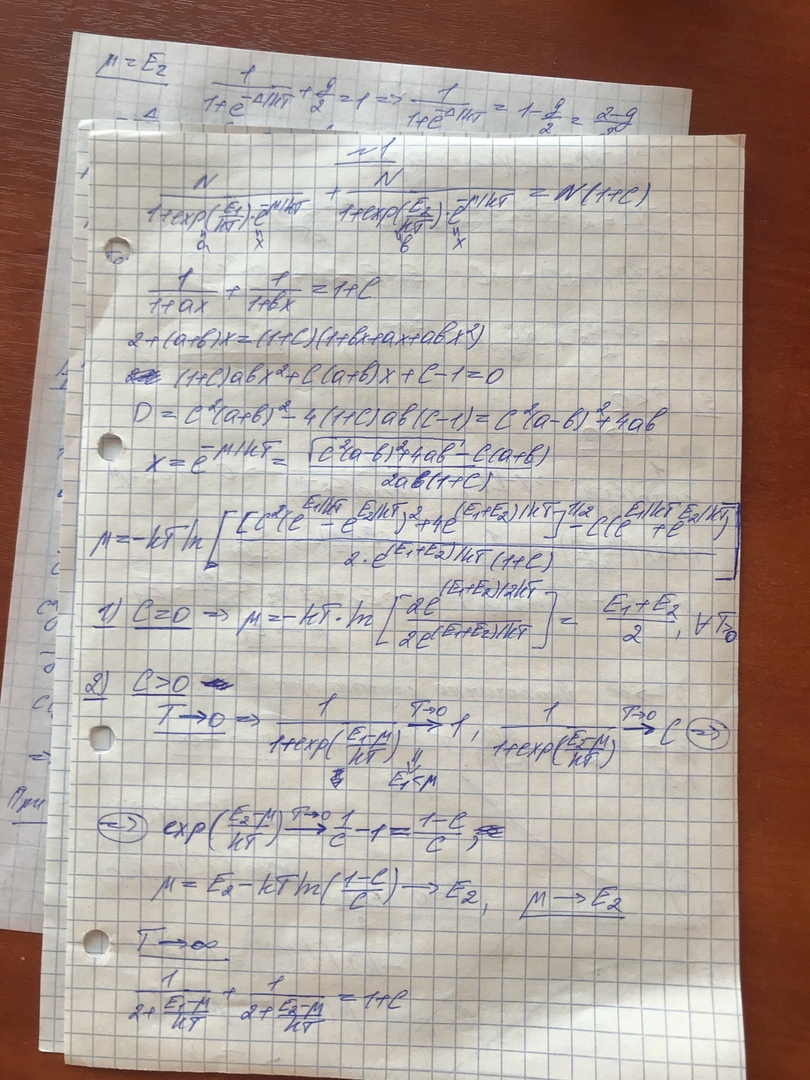 μ = E₂   1/(1+e^(-Δ/kT)) + g/2 = 1 => 1/(1+e^(-Δ/kT)) = 1 - g/2 = (2-g)/2
~1
N/(1+exp(E₁/kT)·e^(-μ/kT)) + N/(1+exp(E₂/kT)·e^(-μ/kT)) = N(1+C)
a x в x
1/(1+ax) + 1/(1+вx) = 1+C
2+(a+в)x = (1+C)(1+вx+ax+aвx²)
(1+C)aвx² + C(a+в)x + C-1 = 0
D = C²(a+в)² - 4(1+C)aв(C-1) = C²(a-в)² + 4aв
x = e^(-μ/kT) = (√(C²(a-в)²+4aв) - C(a+в))/(2aв(1+C))
μ = -kT ln[([C²(e^(E₁/kT) - e^(E₂/kT))² + 4e^((E₁+E₂)/kT)]^(1/2) - C(e^(E₁/kT) + e^(E₂/kT)))/(2·e^((E₁+E₂)/kT)(1+C))]
1) C=0 => μ = -kT·ln[2e^((E₁+E₂)/2kT)/2e^((E₁+E₂)/kT)] = (E₁+E₂)/2, ∀T
2) C>0
T→0 => 1/(1+exp((E₁-μ)/kT)) →(T→0) 1, 1/(1+exp((E₂-μ)/kT)) →(T→0) C =>
E₁<μ
=> exp((E₂-μ)/kT) →(T→0) 1/C - 1 = (1-C)/C,
μ = E₂ - kT ln((1-C)/C) → E₂, μ → E₂
T→∞
1/(2+(E₁-μ)/kT) + 1/(2+(E₂-μ)/kT) = 1+C